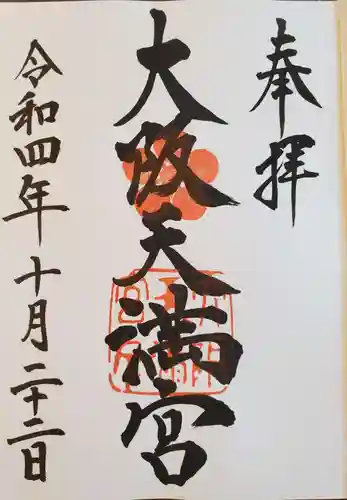 奉拝
大阪天満宮
令和四年十月二十二日